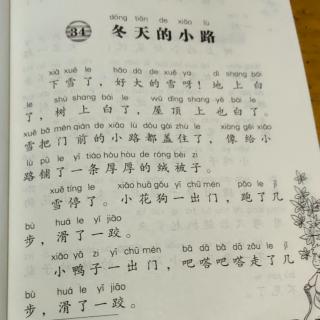 dōng tiān de xiǎo lù
34 冬天的小路
xià xuě le hǎo dà de xuě ya dì shang bái
下雪了，好大的雪呀！地上白
le shù shang bái le wū dǐng shang yě bái le
了，树上白了，屋顶上也白了。
xuě bǎ mén qián de xiǎo lù dōu gài zhù le xiàng gěi xiǎo
雪把门前的小路都盖住了，像给小
lù pù le yī tiáo hòu hòu de róng bèi zi
路铺了一条厚厚的绒被子。
xuě tíng le xiǎo huā gǒu yī chū mén pǎo le jǐ
雪停了。小花狗一出门，跑了几
bù huá le yī jiāo
步，滑了一跤。
xiǎo yā zi yī chū mén bā dā bā dā zǒu le jǐ
小鸭子一出门，吧嗒吧嗒走了几
bù huá le yī jiāo
步，滑了一跤。